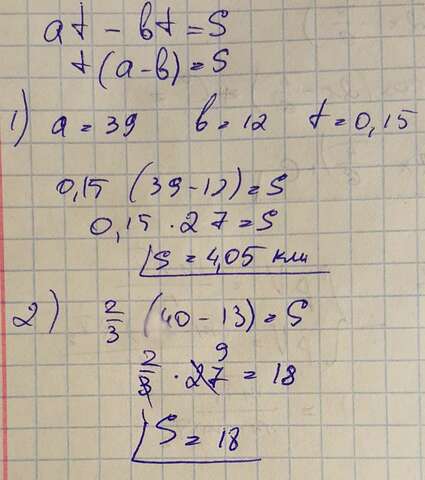 at - bt = S
t(a-b) = S
1) a = 39 b = 12 t = 0,15
0,15 (39-12) = S
0,15 · 27 = S
S = 4,05 км
2) 2/3 (40-13) = S
2/3 · 27 9 = 18
S = 18